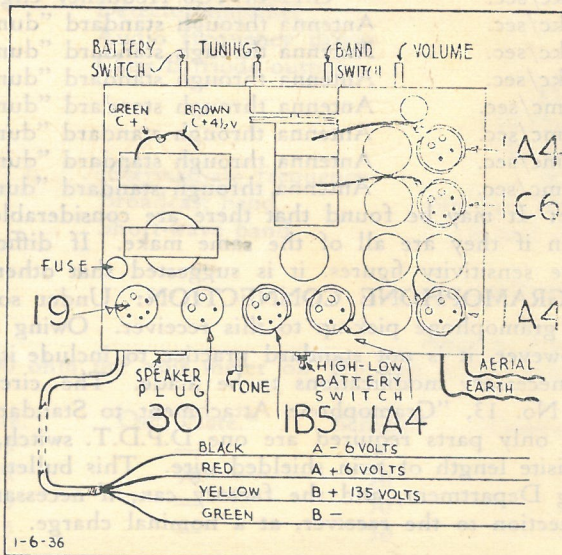 BATTERY SWITCH
TUNING
BAND SWITCH
VOLUME
GREEN C+
BROWN C+4½V
1A4
1C6
FUSE
19
1A4
SPEAKER PLUG
TONE
HIGH-LOW BATTERY SWITCH
AERIAL
EARTH
30
1B5
1A4
BLACK A – 6 VOLTS
RED A + 6 VOLTS
YELLOW B + 135 VOLTS
GREEN B –
1-6-36